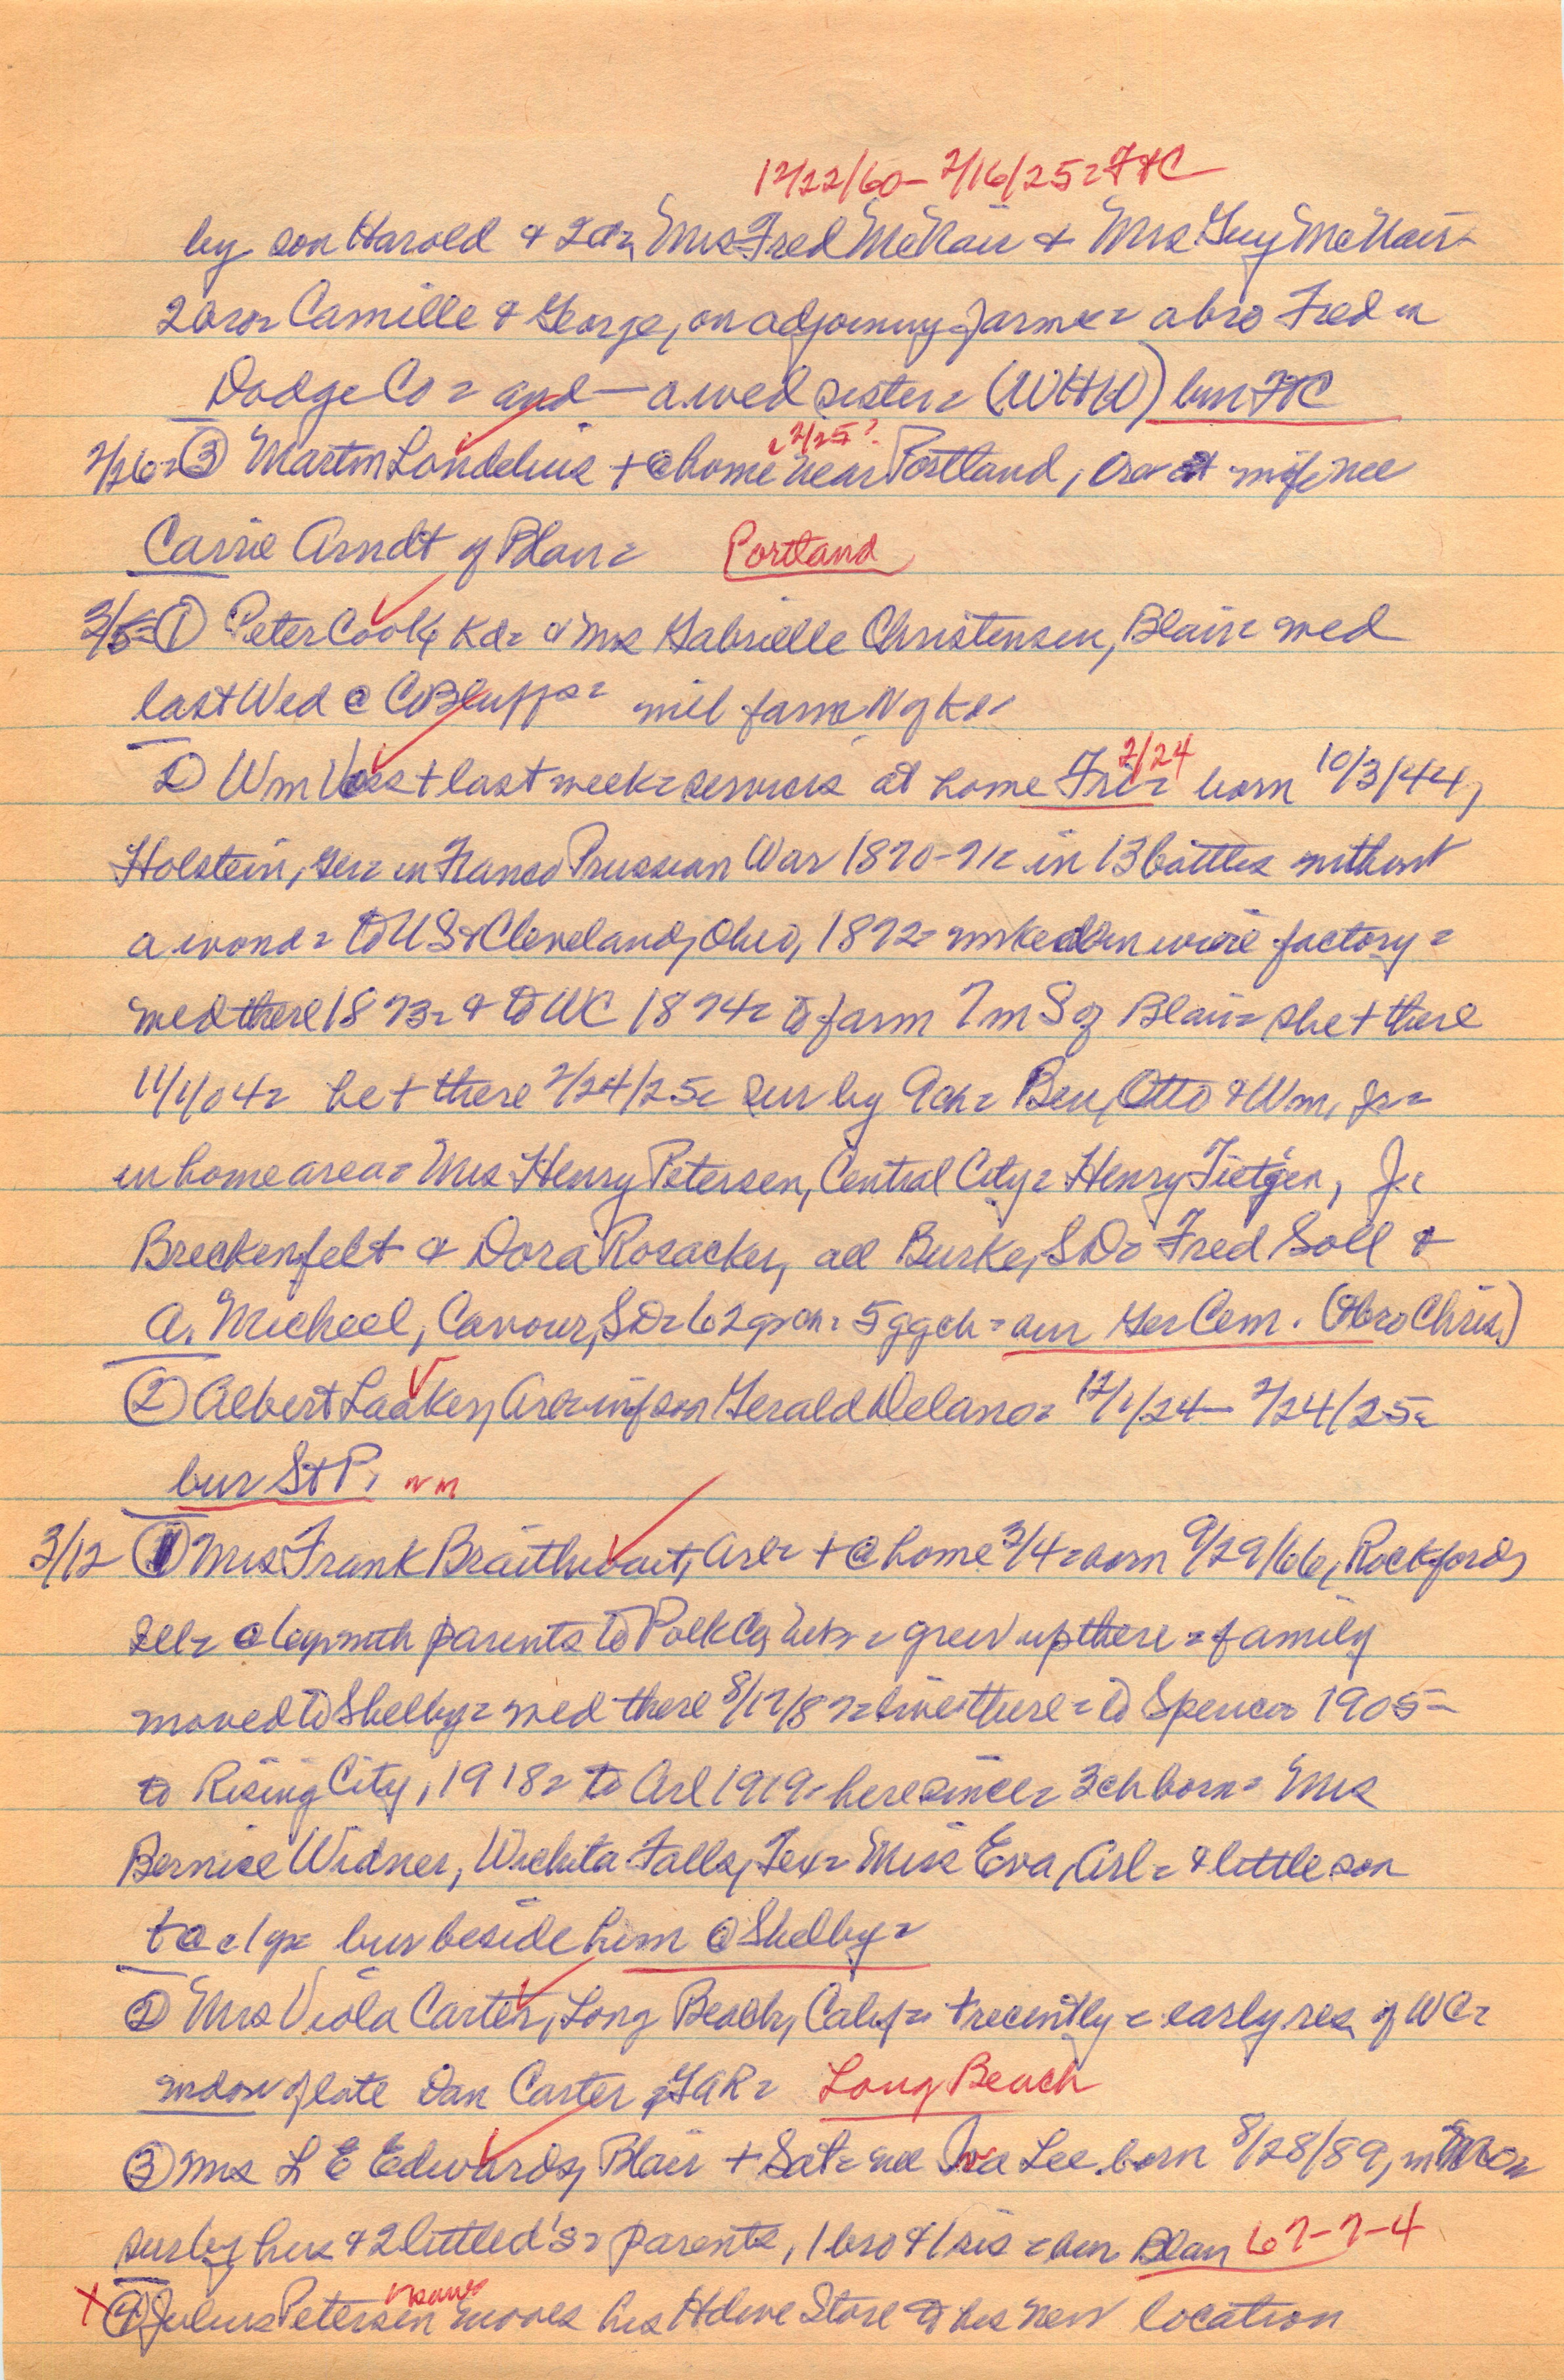 12/22/60 - 2/16/25 = FTC
by son Harold & 2d = Mrs Fred McNair & Mrs Guy McNair =
2 bros = Camille & George, on adjoining farms = a bro Fred in
Dodge Co = and — a wed sister = (WHW) bur FTC
2/26 = ③ Martin Londelius + @ home near Portland, Ore wife nee
2/25?
Carrie Arndt of Blair = Portland
3/5 = ① Peter Cook, Kd = & Mrs Gabrielle Christensen, Blair = wed
last Wed @ CoBluffs = will farm N of Kd =
② Wm Voss + last week = services at home Fri = born 10/3/44,
2/24
Holstein, Ger = in Franco Prussian War 1870-71 = in 13 battles without
a wond = to US & Cleveland, Ohio, 1872 = worked in wire factory =
wed there 1873 = & to WC 1874 = to farm 7m S of Blair = she + there
11/1/04 = he + there 2/24/25 = sur by 9ch = Ben, Otto & Wm, Jr =
in home area = Mrs Henry Petersen, Central City = Henry Tietgen, J.
Breckenfelt & Dora Rosacker, all Burke, SD = Fred Soll &
A. Micheel, Cavour, SD = 62 grch = 5 ggch = bur Ger Cem. (bro Chris)
② Albert Laaker, Arl = inf son Gerald Delano = 12/1/24 - 2/24/25 =
bur St P. nn
3/12 ① Mrs Frank Braithwait, Arl = + @ home 3/4 = born 9/29/66, Rockford,
Ill = @ 6y with parents to Polk Co, Neb = grew up there = family
moved to Shelby = wed there 8/17/87 = live there = to Spencer 1905 =
to Rising City, 1918 = to Arl 1919 = here since = 3ch born = Mrs
Bernice Widner, Wichita Falls, Tex = Miss Eva, Arl = & little son
+ @ 1y = bur beside him @ Shelby =
② Mrs Viola Carter, Long Beach, Calif = + recently = early res of WC =
widow of late Dan Carter, GAR = Long Beach
③ Mrs L E Edwards, Blair + Sat = nee Iva Lee born 8/28/89, in
sur by hus & 2 little d's = parents, 1 bro & 1 sis = bur Blair 67-7-4
x ④ Julius Petersen moves his Hdwe Store to his new location